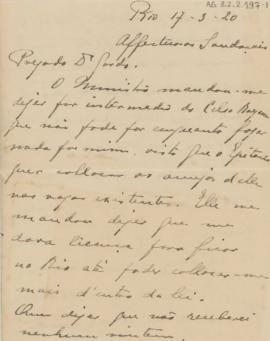 AG 22.2.997-1
Rio 17-3-20
Affectuosas Saudações
Prezado Dr Gordo.
O Ministro mandou-me
dizer por intermedio do Celso Bayma
que não pode por emquanto fazer
nada por mim, visto que o Epitacio
quer collocar os amigos d'elle
nas vagas existentes. Elle me
mandou dizer que me
dava licença para ficar
no Rio até poder collocar-me
mais d'entro da lei.
Quer dizer que não receberei
nenhum vintem.